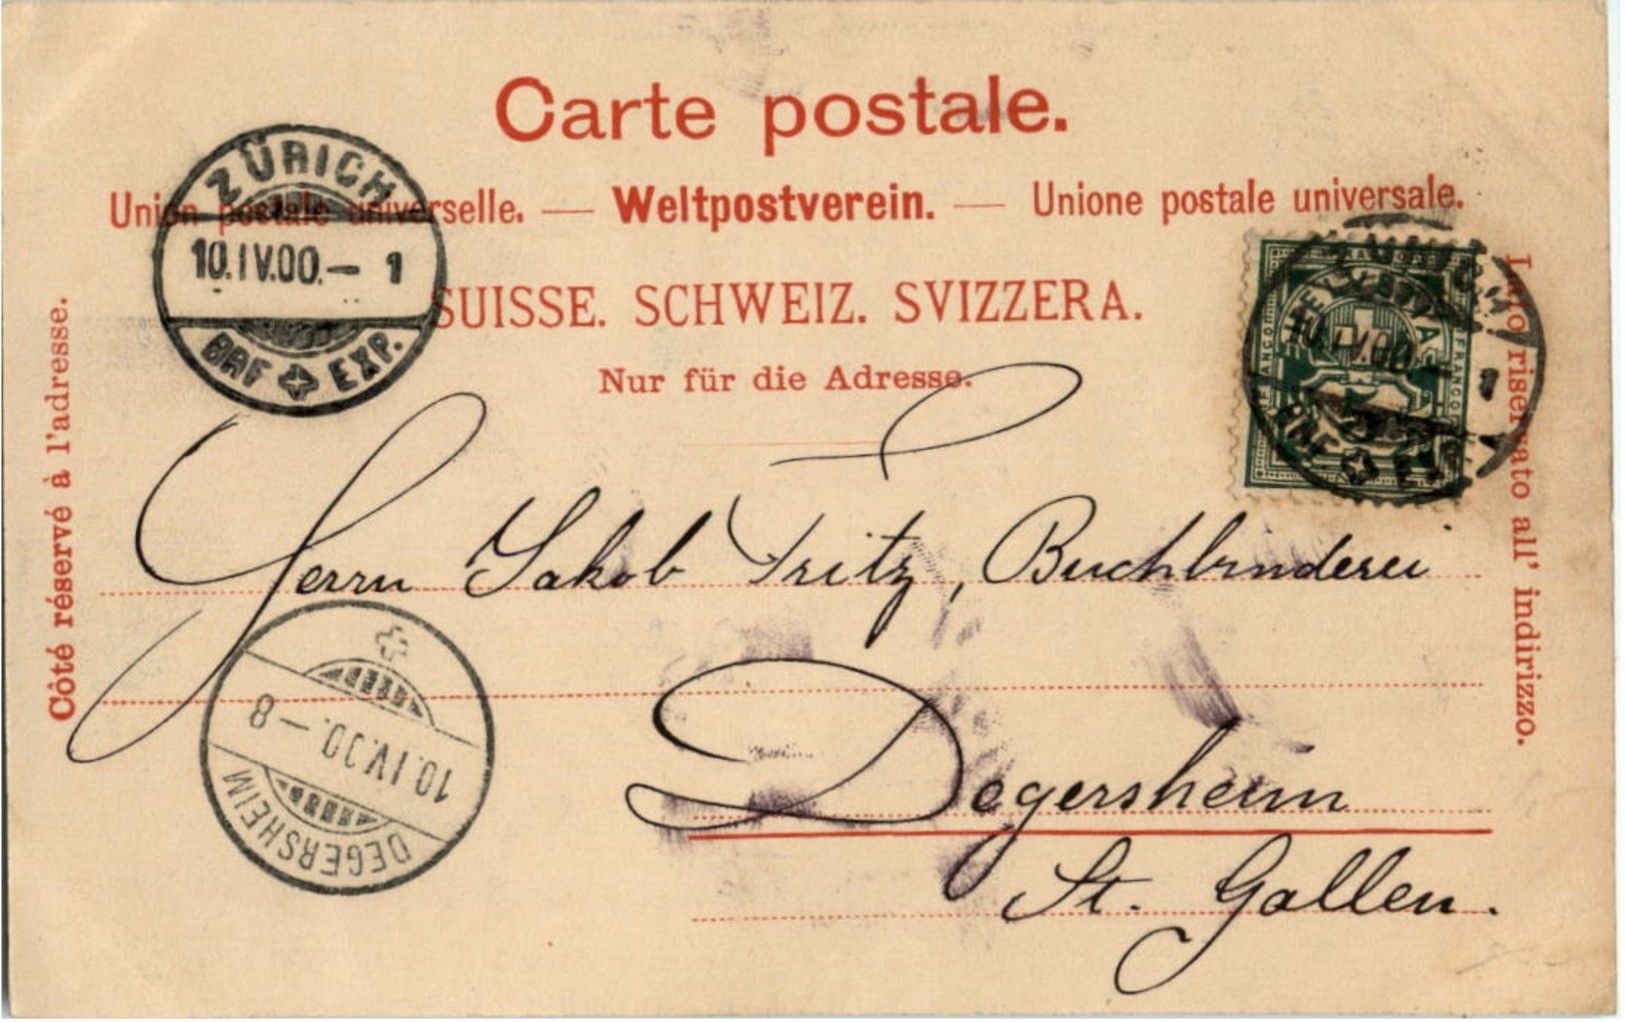 Carte postale.
Union postale universelle. — Weltpostverein. — Unione postale universale.
SUISSE. SCHWEIZ. SVIZZERA.
Nur für die Adresse.
Côté réservé à l'adresse.
Lato riservato all' indirizzo.
ZÜRICH
10.IV.00.– 1
BRF EXP.
ZÜRICH
HELVETIA
FRANCO FRANCO
10.IV.00.– 1
5
BRF EXP.
Herrn Jakob Fritz, Buchbinderei
Degersheim
St. Gallen.
10.IV.00.–8
DEGERSHEIM